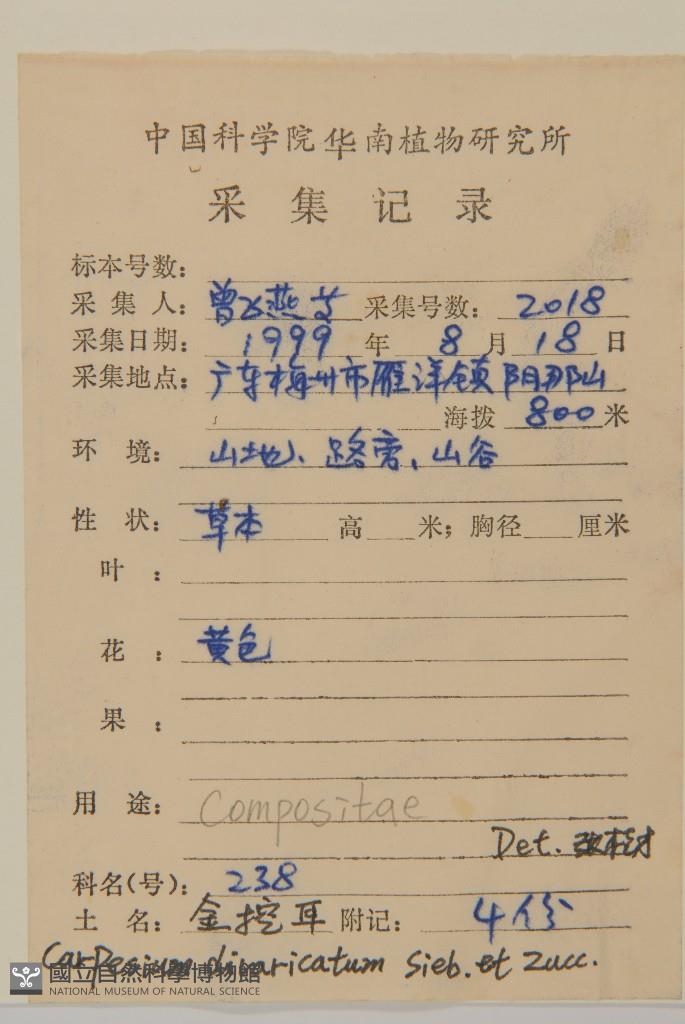 中国科学院华南植物研究所
采集记录
标本号数：
采集人：曾飞燕 采集号数：2018
采集日期：1999年8月18日
采集地点：广东梅州市雁洋镇阴那山
海拨 800 米
环境：山地、路旁，山谷
性状：草本 高 米；胸径 厘米
叶：
花：黄色
果：
用途：Compositae
Det.
科名(号)：238
土名：金挖耳 附记：4份
Carpesium divaricatum Sieb. et Zucc.
國立自然科學博物館
NATIONAL MUSEUM OF NATURAL SCIENCE